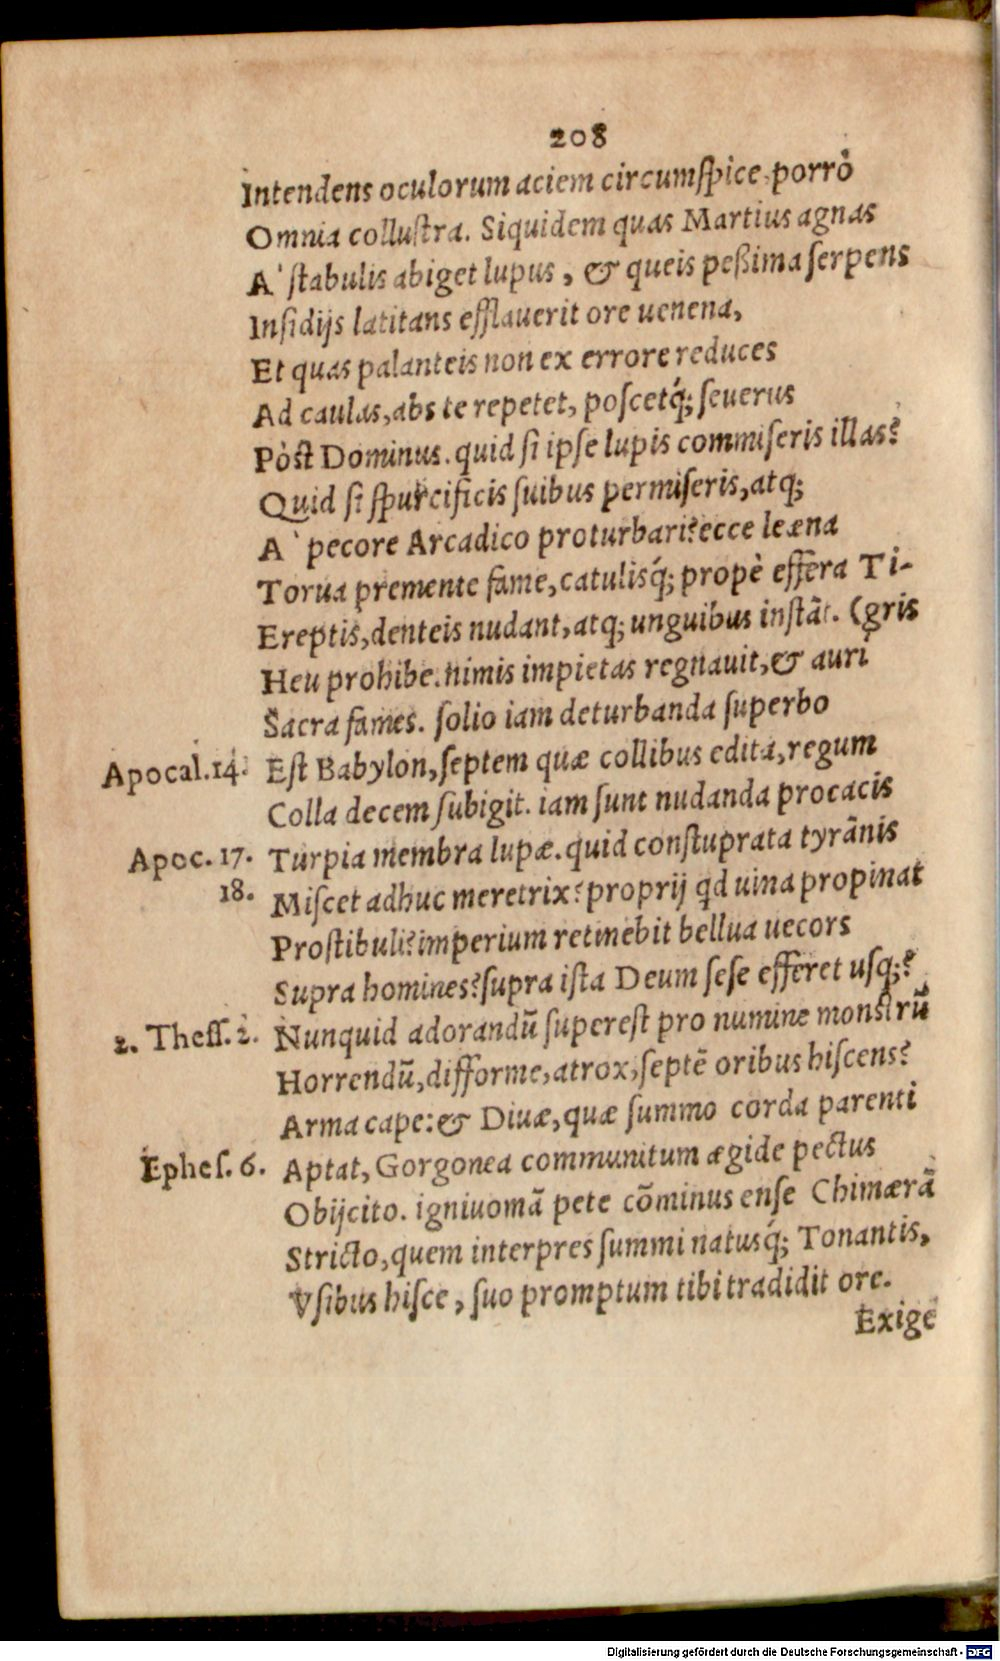 208
Intendens oculorum aciem circumſpice porrò
Omnia colluſtra. Siquidem quas Martius agnas
A` ſtabulis abiget lupus, & queis peßima ſerpens
Inſidijs latitans efflauerit ore uenena,
Et quas palanteis non ex errore reduces
Ad caulas, abs te repetet, poſcetq́; ſeuerus
Pòſt Dominus. quid ſi ipſe lupis commiſeris illas?
Quid ſi ſpurcificis ſuibus permiſeris, atq;
A` pecore Arcadico proturbari? ecce leæna
Torua premente fame, catulisq́; propè effera Ti-
Ereptis, denteis nudant, atq; unguibus inſtāt. (gris
Heu prohibe. nimis impietas regnauit, & auri
Sacra fames. ſolio iam deturbanda ſuperbo
Apocal. 14. Eſt Babylon, ſeptem quæ collibus edita, regum
Colla decem ſubigit. iam ſunt nudanda procacis
Apoc. 17. Turpia membra lupæ. quid conſtuprata tyrānis
18. Miſcet adhuc meretrix? proprij qd uina propinat
Proſtibuli? imperium retinebit bellua uecors
Supra homines? ſupra iſta Deum ſeſe efferet uſq;?
2. Theſſ. 2. Nunquid adorandū ſupereſt pro numine monſtrū
Horrendū, difforme, atrox, ſeptē oribus hiſcens?
Arma cape: & Diuæ, quæ ſummo corda parenti
Epheſ. 6. Aptat, Gorgonea communitum ægide pectus
Obijcito. igniuomā pete cōminus enſe Chimærā
Stricto, quem interpres ſummi natusq́; Tonantis,
Vſibus hiſce, ſuo promptum tibi tradidit ore.
Exige
Digitalisierung gefördert durch die Deutsche Forschungsgemeinschaft - DFG